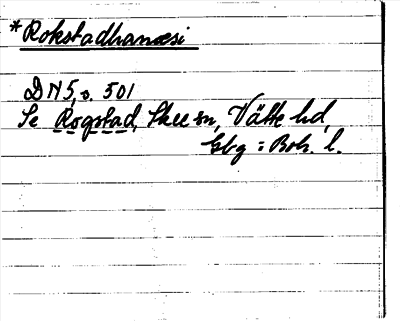 *Rokstadhanæsi
DN 5, s. 501
Se Rogstad, Skee sn, Vätte hd,
Gbg : Boh. l.